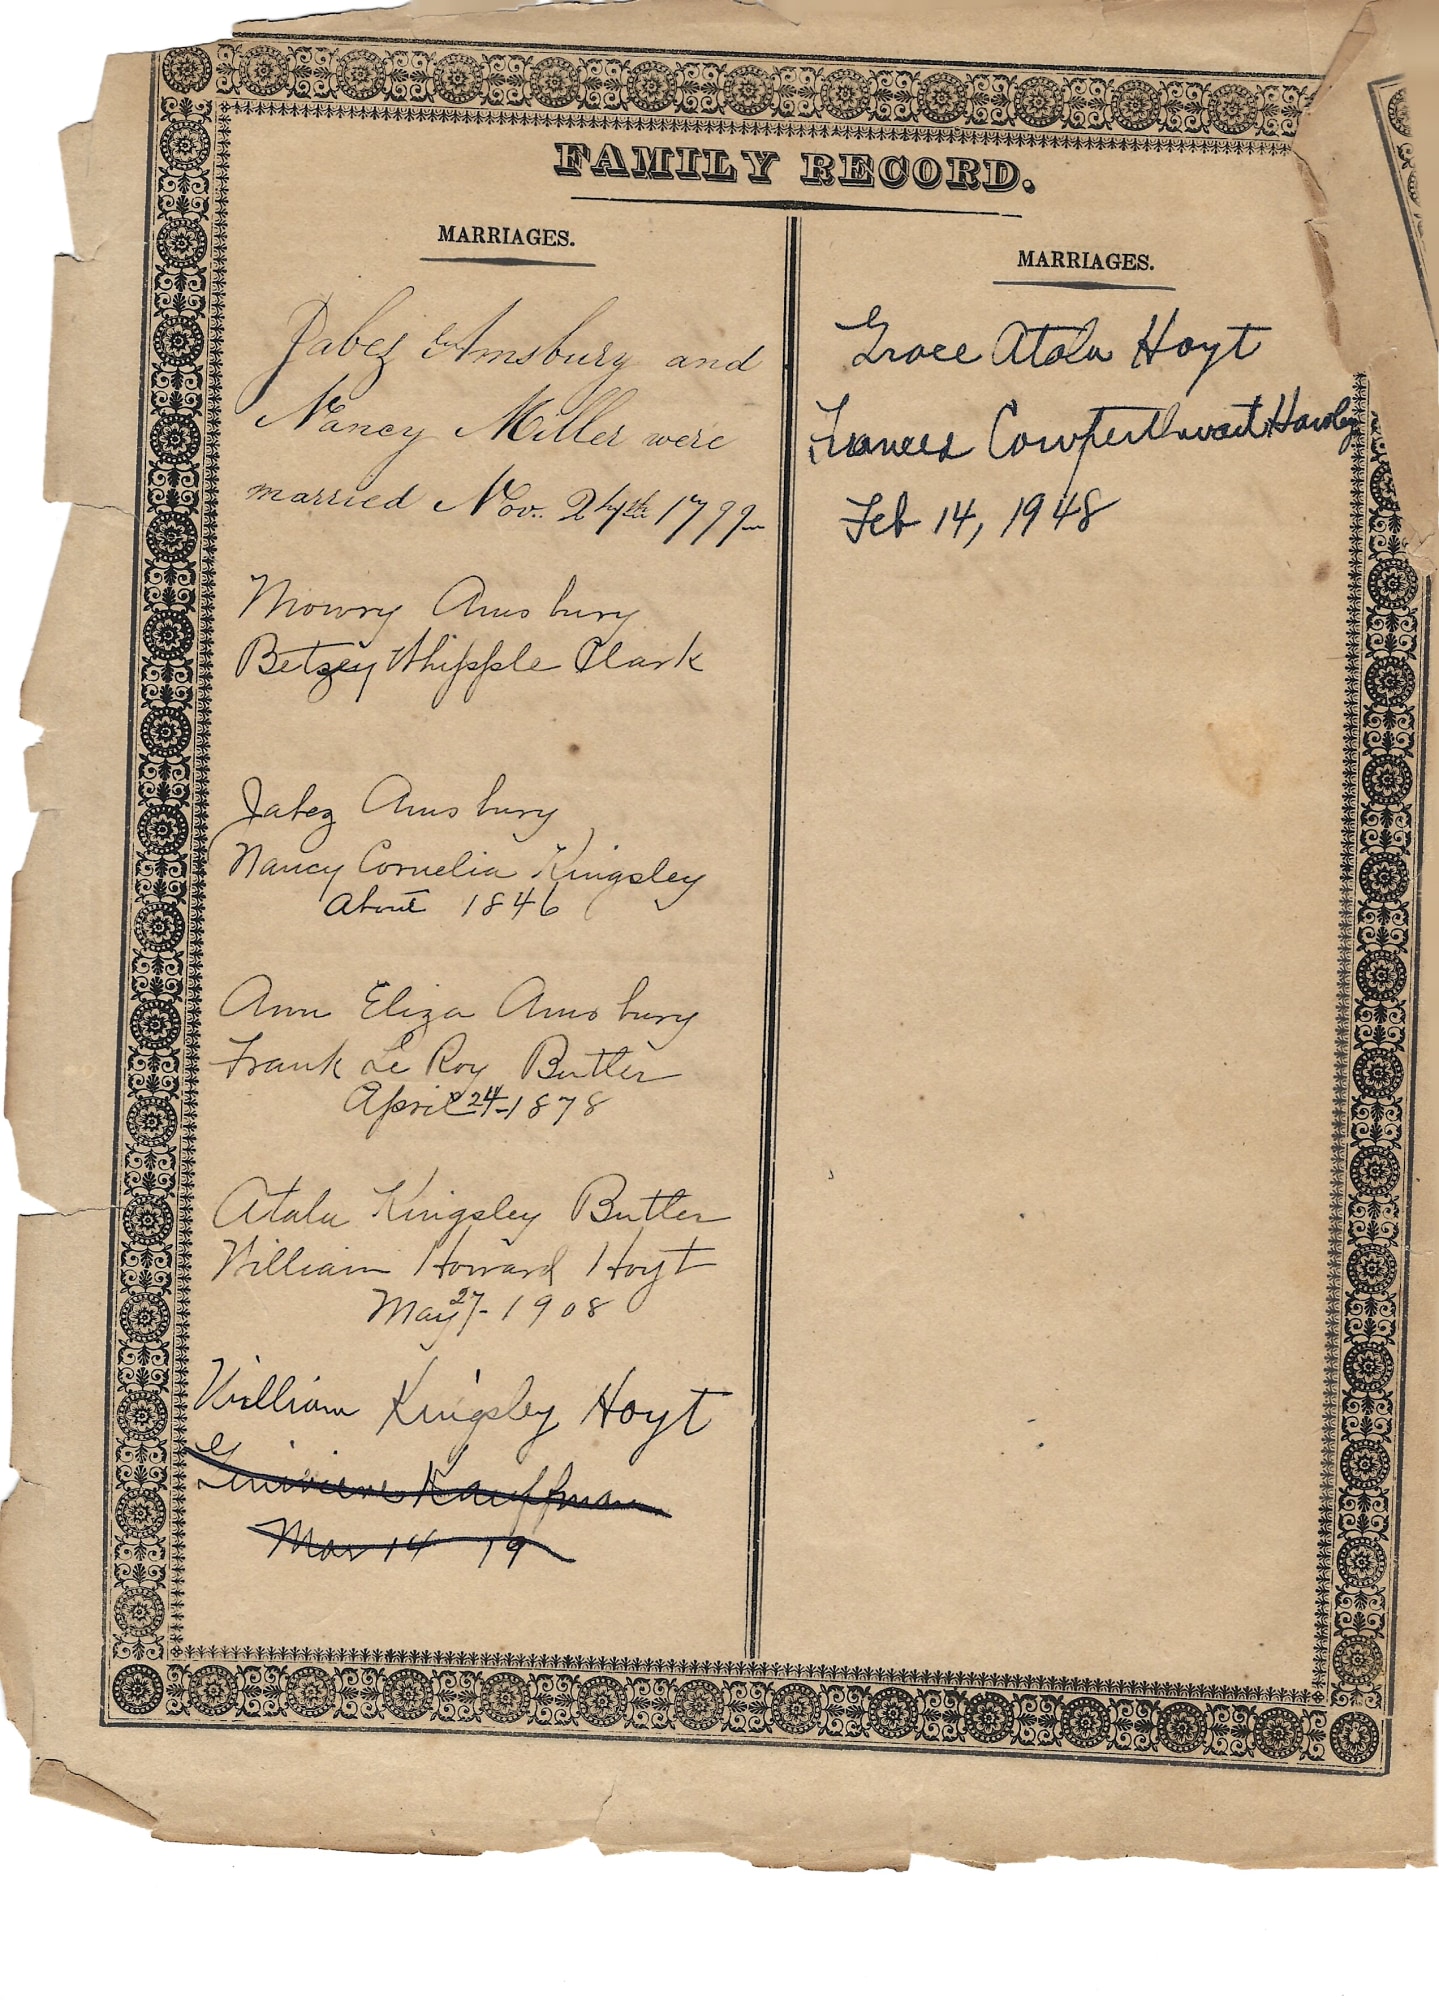 FAMILY RECORD.
MARRIAGES.
Jabez Amsbury and
Nancy Miller were
married Nov. 24th 1799
Mowry Amsbury
Betsey Whipple Clark
Jabez Amsbury
Nancy Cornelia Kingsley
About 1846
Ann Eliza Amsbury
Frank Le Roy Butler
April 24-1878
Atala Kingsley Butler
William Howard Hoyt
May 27-1908
William Kingsley Hoyt
Kauffman
Mar 14 19
MARRIAGES.
Grace Atala Hoyt
Frances Cowperthwait Hawley
Feb 14, 1948